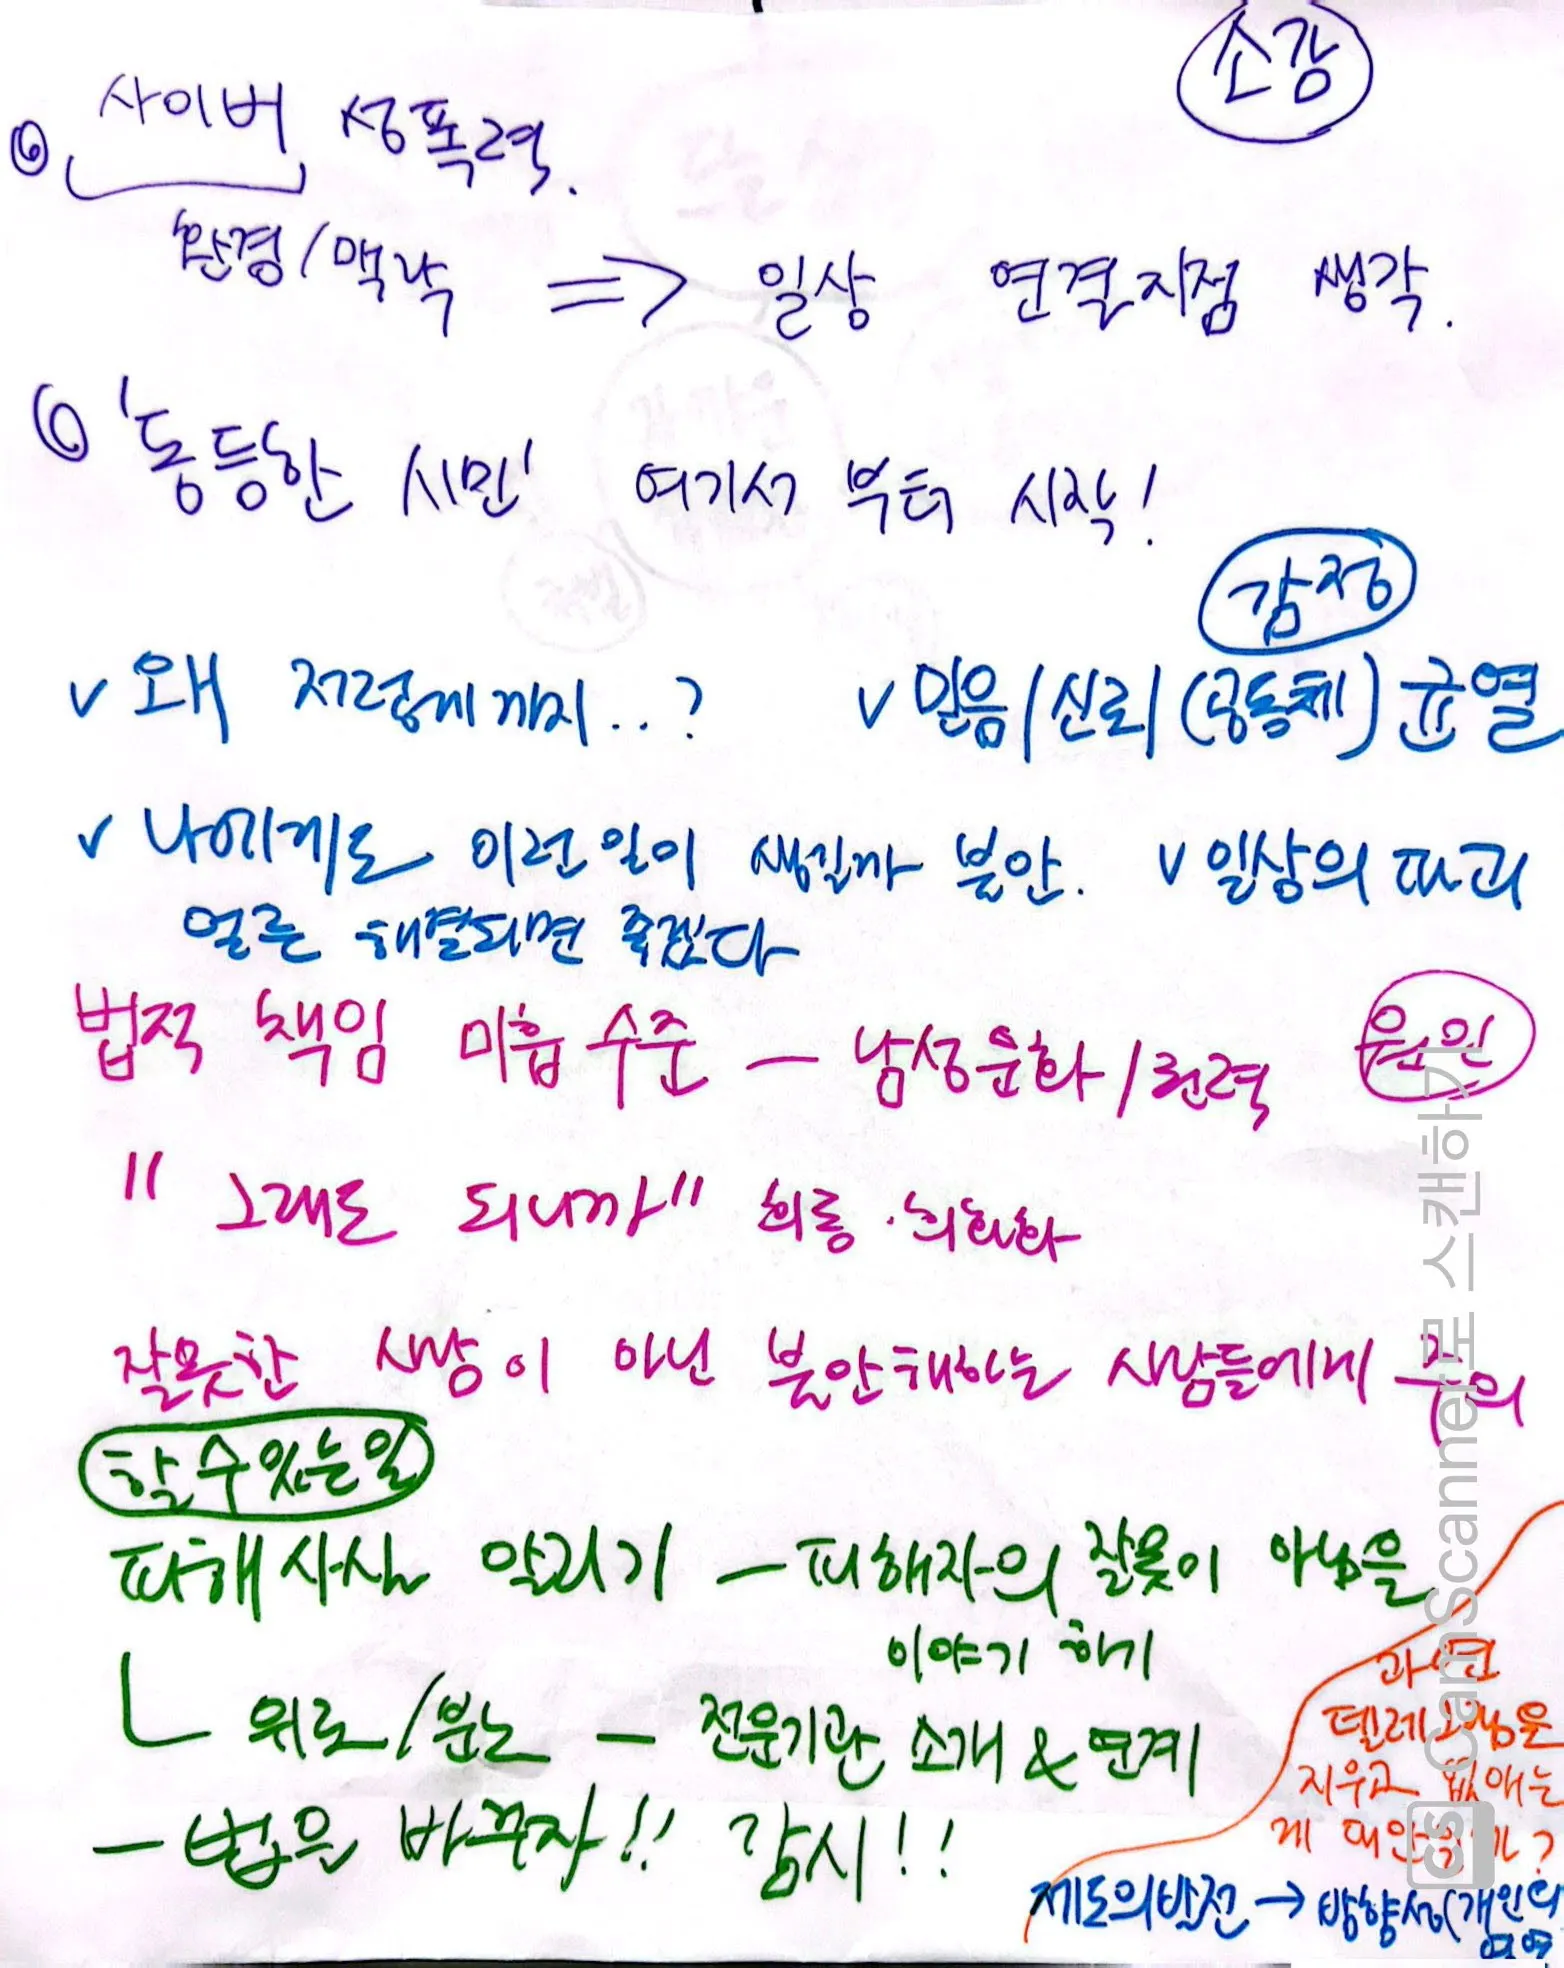 소감
◎ 사이버 성폭력.
환경/맥락 => 일상 연결지점 생각.
◎ '동등한 시민' 여기서 부터 시작!
감정
v 왜 저렇게까지..? v 믿음/신뢰 (공동체) 균열
v 나에게도 이런일이 생길까 불안. v 일상의 파괴
얼른 해결되면 좋겠다
법적 책임 미흡 수준 — 남성문화/권력 원인
"그래도 되니까" 희롱·희화화
잘못한 사람이 아닌 불안해하는 사람들에게 주의
할 수 있는 일
피해사실 알리기 — 피해자의 잘못이 아님을
이야기 하기
ㄴ 위로/분노 — 전문기관 소개 & 연계
— 법을 바꾸자!! 감시!!
과연
텔레그램을
지우고 없애는
게 대안인가?
제도의 발전 → 방향성(개인의
CS CamScanner로 스캔하기